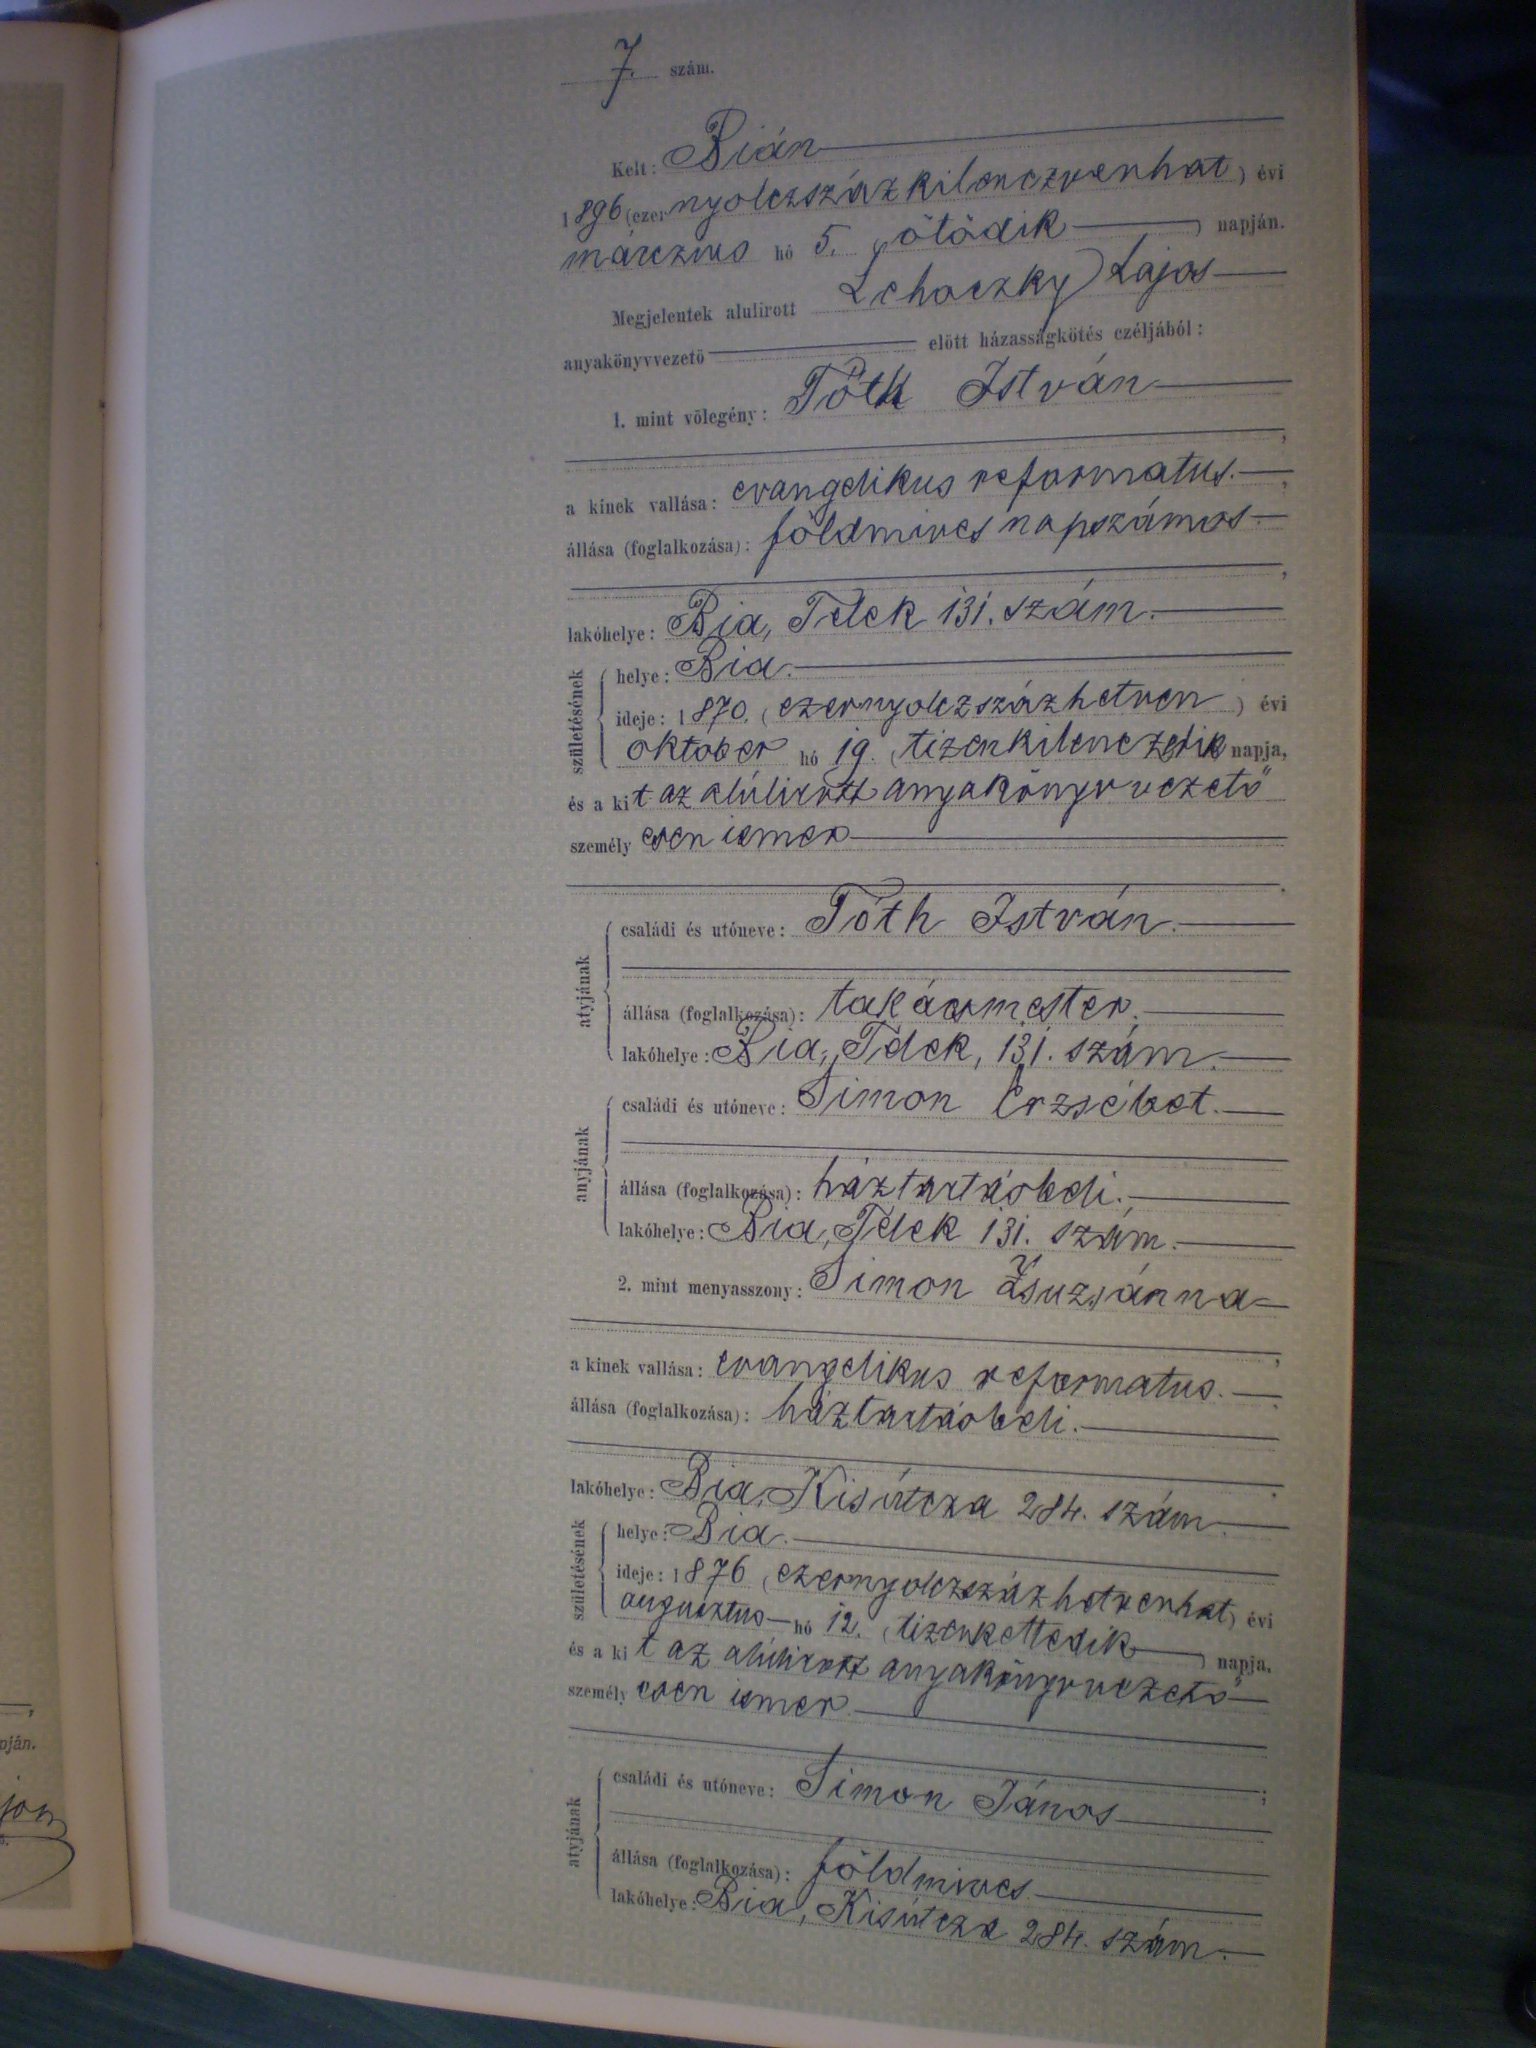 7. szám.
Kelt: Bián
1896 (ezernyolczszázkilenczvenhat) évi
márczius hó 5. (ötödik) napján.
Megjelentek alulirott Lehoczky Lajos
anyakönyvvezető előtt házasságkötés czéljából:
1. mint vőlegény: Tóth István
a kinek vallása: evangelikus reformatus.
állása (foglalkozása): földmives napszámos
lakóhelye: Bia, Telek 131. szám.
születésének
helye: Bia.
ideje: 1870. (ezernyolczszázhetven) évi
október hó 19. (tizenkilenczedik napja,
és a kit az alúlirott anyakönyvvezető
személyesen ismer
atyjának
családi és utóneve: Tóth István.
állása (foglalkozása): takácsmester.
lakóhelye: Bia, Telek, 131. szám.
anyjának
családi és utóneve: Simon Erzsébet.
állása (foglalkozása): háztartásbeli.
lakóhelye: Bia, Telek 131. szám.
2. mint menyasszony: Simon Zsuzsánna
a kinek vallása: evangelikus reformatus.
állása (foglalkozása): háztartásbeli.
lakóhelye: Bia, Kisútcza 284. szám.
születésének
helye: Bia.
ideje: 1876 (ezernyolczszázhetvenhat) évi
augusztus hó 12. (tizenkettedik) napja,
és a kit az alúlirott anyakönyvvezető
személyesen ismer.
atyjának
családi és utóneve: Simon János
állása (foglalkozása): földmives
lakóhelye: Bia, Kisútcza 284. szám.